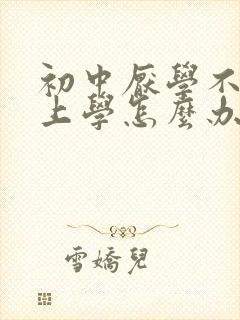 初中厭學不
上學怎麼办
雪嬌兒